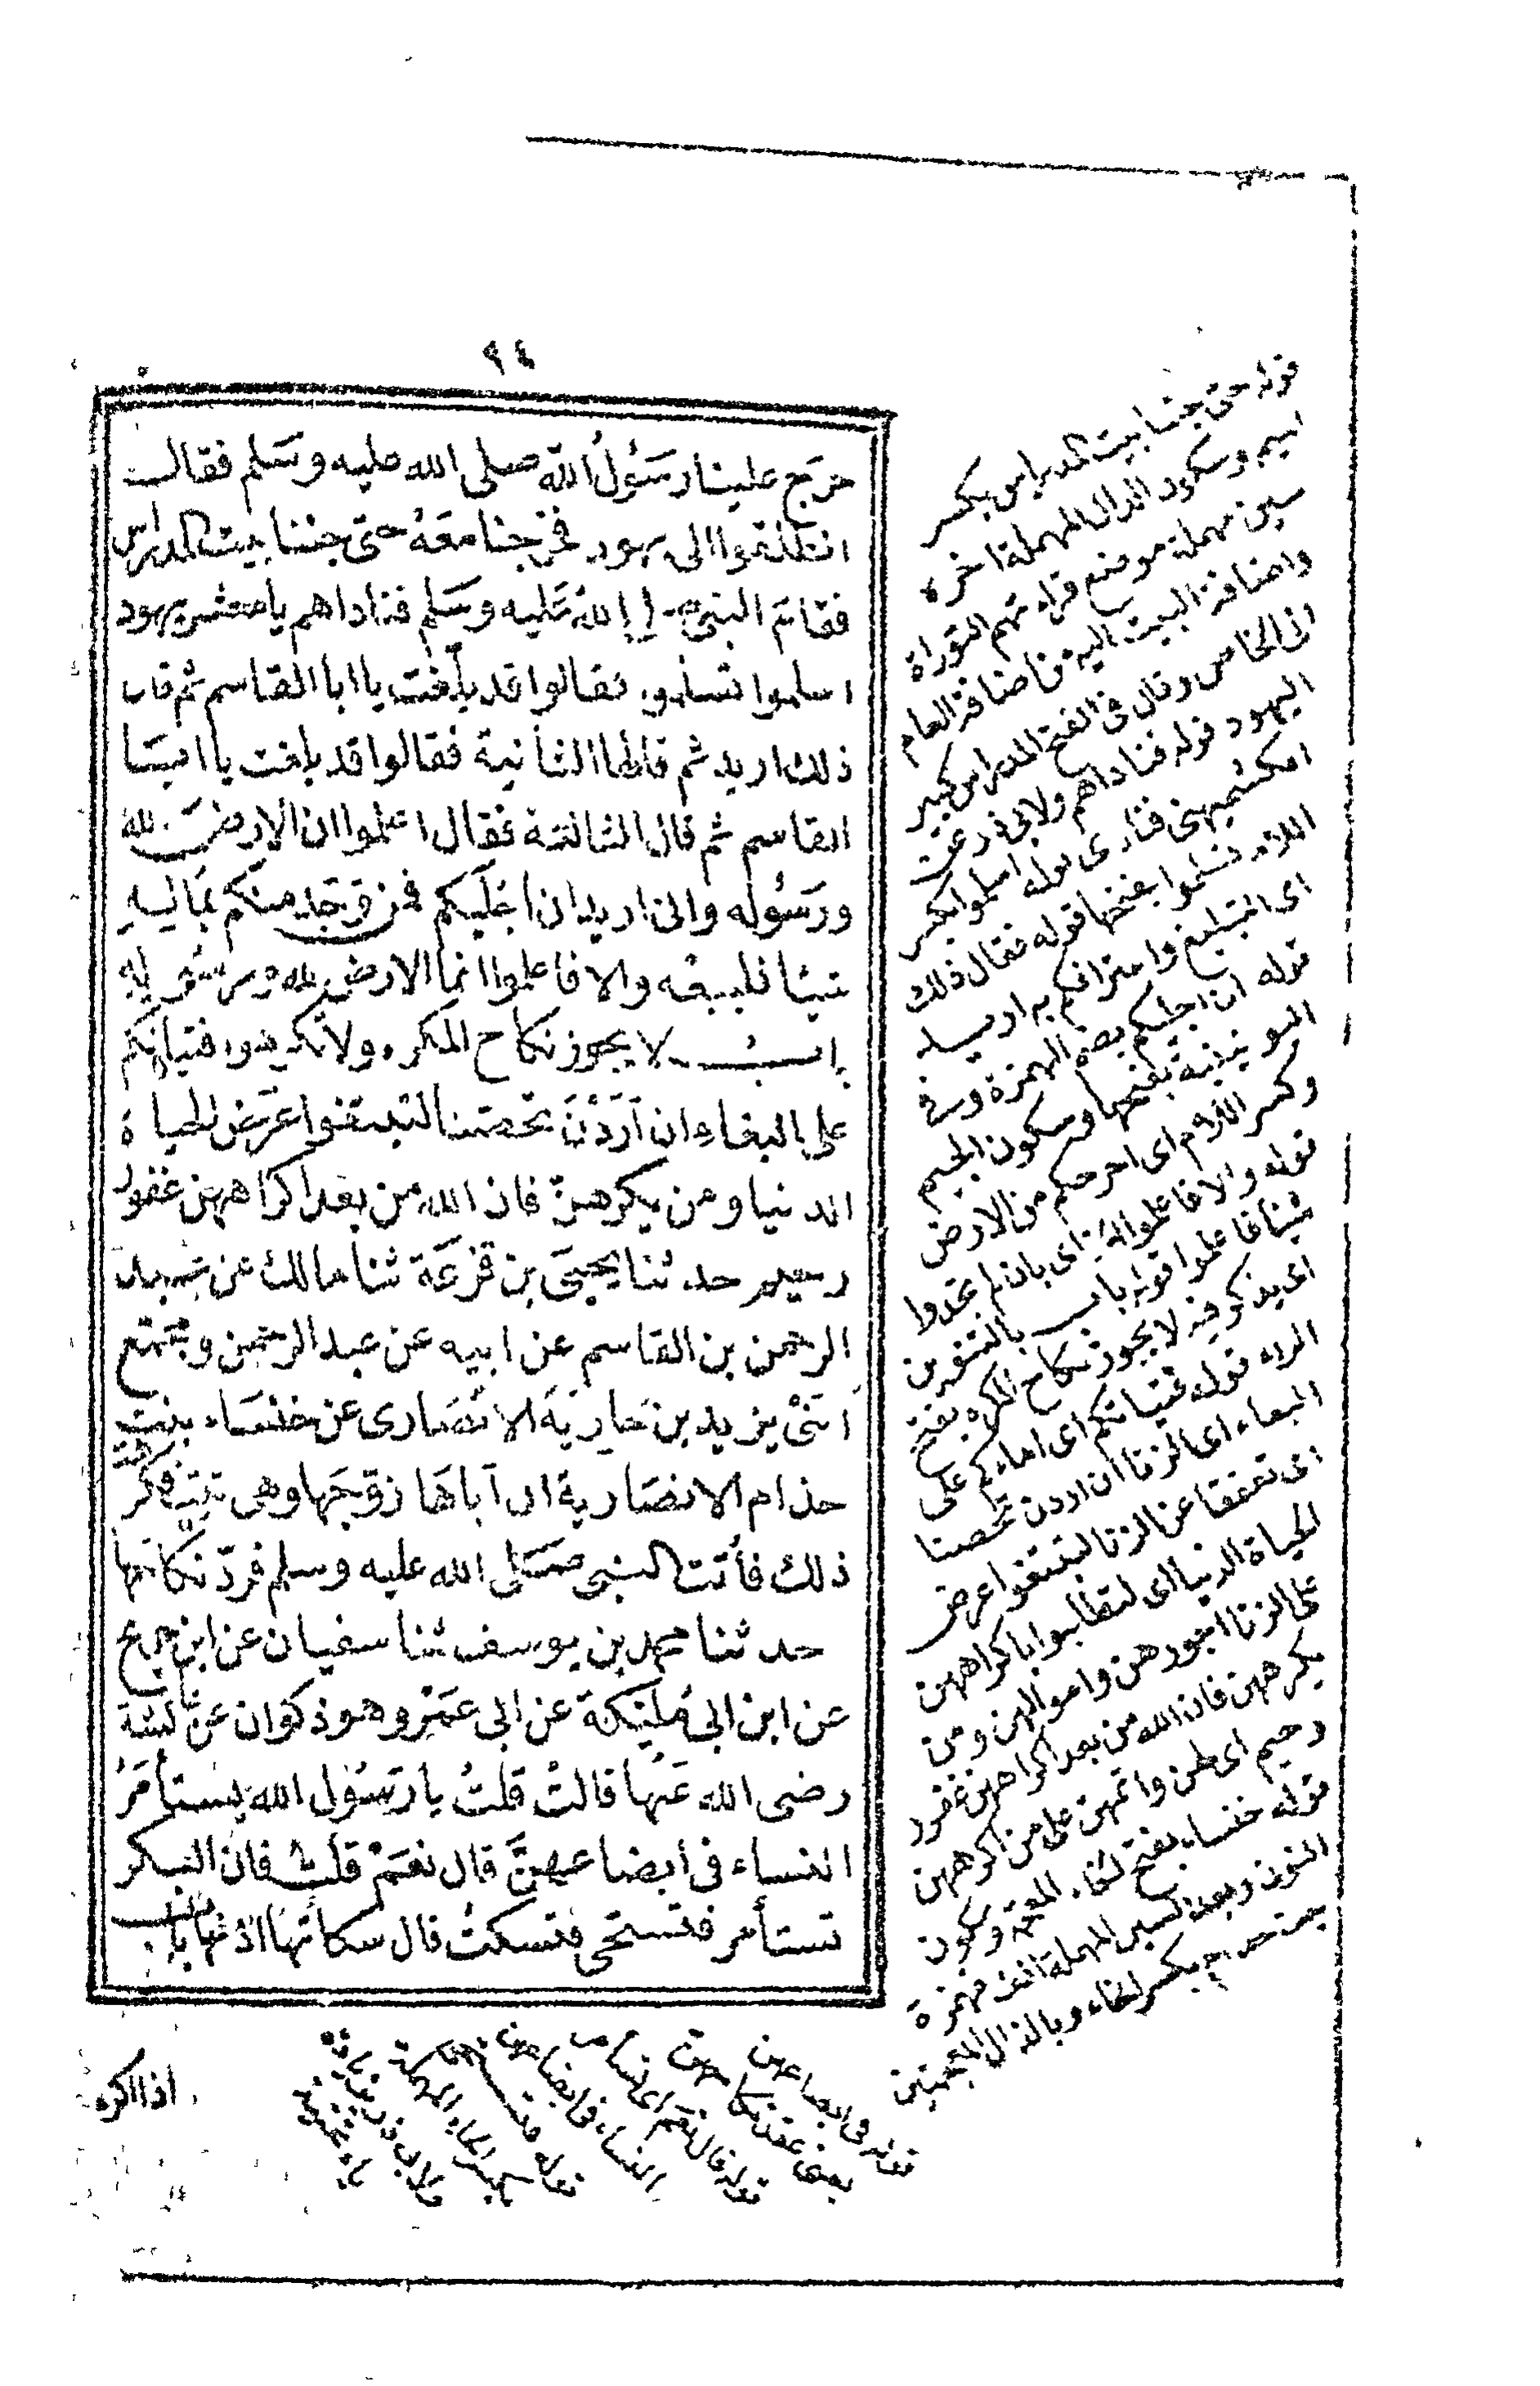 ٩٤
خرَج علينا رسَوُلُ الله صلى الله عليه وسَلم فقالــ
انطلقوا الى يهود فخرجنا معَهُ حتى جئنا بيت المدراس
فقام النبى صلى اللهُ عَليه وسَلم فناداهم يا معشر يهود
اسلموا تسلموا فقالوا قد بلّغت يا ابا القاسم ثم قال
ذلك اريد ثم قالها الثانية فقالوا قد بلغت يا ابَا
القاسم ثم قال الثالثة فقال اعلموا ان الارضَ لله
ورَسُوله وانى اريد ان اُجْليَكم فمن وَجَد منكم بماله
شيئا فليبعه والا فاعلموا انما الارض لله ورسوله
بابــ لا يجوز نكاح المكره ولا تكرهوا فتياتكم
على البغاء ان اَرَدْنَ تحصنا لتبتغوا عَرَض الحياة
الدنيا ومن يكرههنّ فان الله من بعد اكراههن غفور
رحيم حدثنا يحيىَ بن قزعَة ثنا مالك عن عبد
الرحمن بن القاسم عن ابيه عن عبد الرحمن ومجمّع
اَبنَىْ يزيد بن جَاريَة الانصَارى عن خنسَاء بنت
خذام الانصَارية ان اَباهَا زوّجَها وهى ثيّب فكرهت
ذلك فأتت النبى صَلى الله عليه وسلم فردّ نكاحَها
حدثنا محمد بن يوسف ثنا سفيان عن ابن جريج
عن ابن ابى مُليْكة عن ابى عَمْرو هو ذكوان عن عائشة
رضى الله عَنها قالتْ قلتُ يا رَسُول الله يُستأمَرُ
النساء فى أبضاعهنَّ قال نعَمْ قلتُ فان البكر
تستأمر فتستحى فتسكتُ قال سكاتهَا اذنها بابــ
قوله حتى جئنا بيت المدراس بكسر
الميم وسكون الدال المهملة اخره
سين مهملة موضع قراءتهم التوراة
واضافة البيت اليه من اضافة العام
الى الخاص وقال فى الفتح المدراس كبير
اليهود قوله فناداهم ولابى ذر عن
الكشميهنى فنادى قوله اسلموا بكسر
اللام تسلموا بفتحها قوله فقال ذلك
اى التبليغ واعترافكم به اريد
قوله ان اجليكم بضم الهمزة وفى
اليونينية بفتحها وسكون الجيم
وكسر اللام اى اخرجكم من الارض
قوله والا فاعلموا الخ اى بان لم تجدوا
شيئا فاعلموا قوله باب بالتنوين
اى يذكر فيه لا يجوز نكاح المكره بفتح
الراء قوله فتياتكم اى اماءكم على
البغاء اى الزنا ان اردن تحصنا
اى تعففا عن الزنا لتبتغوا عرض
الحياة الدنيا اى لتطلبوا باكراههن
على الزنا اجورهن واموالهن ومن
يكرههن فان الله من بعد اكراههن غفور
رحيم اى لهن واثمهن على من اكرههن
قوله خنساء بفتح الخاء المعجمة وسكون
النون وبعد السين المهملة الف مهمزة
بنت خذام بكسر الخاء وبالذال المعجمتين
قوله فى ابضاعهن
يعنى عقد نكاحهن
قوله قال نعم اى تستأمر
النساء فى ابضاعهن
اذا اكره